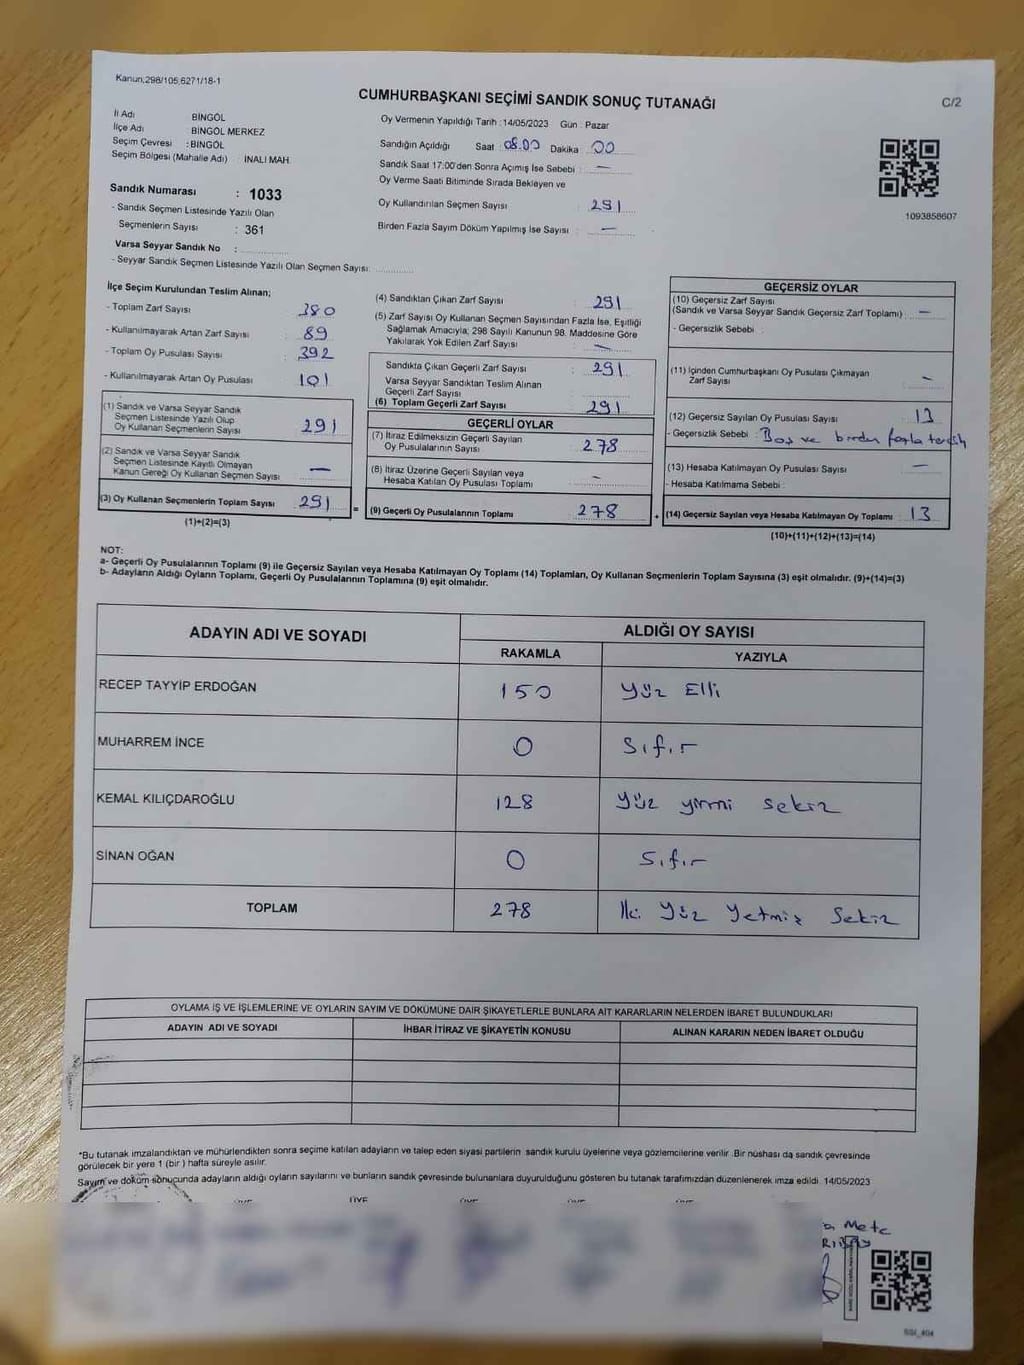 Kanun;298/105;6271/18-1
CUMHURBAŞKANI SEÇİMİ SANDIK SONUÇ TUTANAĞI
C/2
İl Adı BİNGÖL
İlçe Adı BİNGÖL MERKEZ
Seçim Çevresi :BİNGÖL
Seçim Bölgesi (Mahalle Adı) İNALI MAH.
Sandık Numarası : 1033
- Sandık Seçmen Listesinde Yazılı Olan
Seçmenlerin Sayısı : 361
Varsa Seyyar Sandık No :
- Seyyar Sandık Seçmen Listesinde Yazılı Olan Seçmen Sayısı:
Oy Vermenin Yapıldığı Tarih :14/05/2023 Gün : Pazar
Sandığın Açıldığı Saat : 08.00 Dakika 00
Sandık Saat 17:00'den Sonra Açımış İse Sebebi : —
Oy Verme Saati Bitiminde Sırada Bekleyen ve
Oy Kullandırılan Seçmen Sayısı : 291
Birden Fazla Sayım Döküm Yapılmış İse Sayısı : —
1093858607
İlçe Seçim Kurulundan Teslim Alınan;
- Toplam Zarf Sayısı : 380
- Kullanılmayarak Artan Zarf Sayısı : 89
- Toplam Oy Pusulası Sayısı : 392
- Kullanılmayarak Artan Oy Pusulası : 101
(1) Sandık ve Varsa Seyyar Sandık
Seçmen Listesinde Yazılı Olup
Oy Kullanan Seçmenlerin Sayısı : 291
(2) Sandık ve Varsa Seyyar Sandık
Seçmen Listesinde Kayıtlı Olmayan
Kanun Gereği Oy Kullanan Seçmen Sayısı : —
(3) Oy Kullanan Seçmenlerin Toplam Sayısı : 291
(1)+(2)=(3)
(4) Sandıktan Çıkan Zarf Sayısı : 291
(5) Zarf Sayısı Oy Kullanan Seçmen Sayısından Fazla İse, Eşitliği
Sağlamak Amacıyla; 298 Sayılı Kanunun 98. Maddesine Göre
Yakılarak Yok Edilen Zarf Sayısı : —
Sandıkta Çıkan Geçerli Zarf Sayısı : 291
Varsa Seyyar Sandıktan Teslim Alınan
Geçerli Zarf Sayısı :
(6) Toplam Geçerli Zarf Sayısı : 291
GEÇERLİ OYLAR
(7) İtiraz Edilmeksizin Geçerli Sayılan
Oy Pusulalarının Sayısı : 278
(8) İtiraz Üzerine Geçerli Sayılan veya
Hesaba Katılan Oy Pusulası Toplamı : —
= (9) Geçerli Oy Pusulalarının Toplamı : 278
GEÇERSİZ OYLAR
(10) Geçersiz Zarf Sayısı
(Sandık ve Varsa Seyyar Sandık Geçersiz Zarf Toplamı) : —
- Geçersizlik Sebebi :
(11) İçinden Cumhurbaşkanı Oy Pusulası Çıkmayan
Zarf Sayısı : —
(12) Geçersiz Sayılan Oy Pusulası Sayısı : 13
- Geçersizlik Sebebi : Boş ve birden fazla tercih
(13) Hesaba Katılmayan Oy Pusulası Sayısı : —
- Hesaba Katılmama Sebebi :
+ (14) Geçersiz Sayılan veya Hesaba Katılmayan Oy Toplamı : 13
(10)+(11)+(12)+(13)=(14)
NOT:
a- Geçerli Oy Pusulalarının Toplamı (9) ile Geçersiz Sayılan veya Hesaba Katılmayan Oy Toplamı (14) Toplamları, Oy Kullanan Seçmenlerin Toplam Sayısına (3) eşit olmalıdır. (9)+(14)=(3)
b- Adayların Aldığı Oyların Toplamı, Geçerli Oy Pusulalarının Toplamına (9) eşit olmalıdır.
ADAYIN ADI VE SOYADI ALDIĞI OY SAYISI
RAKAMLA YAZIYLA
RECEP TAYYİP ERDOĞAN 150 Yüz Elli
MUHARREM İNCE 0 Sıfır
KEMAL KILIÇDAROĞLU 128 Yüz yirmi sekiz
SİNAN OĞAN 0 Sıfır
TOPLAM 278 İki Yüz Yetmiş Sekiz
OYLAMA İŞ VE İŞLEMLERİNE VE OYLARIN SAYIM VE DÖKÜMÜNE DAİR ŞİKAYETLERLE BUNLARA AİT KARARLARIN NELERDEN İBARET BULUNDUKLARI
ADAYIN ADI VE SOYADI İHBAR İTİRAZ VE ŞİKAYETİN KONUSU ALINAN KARARIN NEDEN İBARET OLDUĞU
*Bu tutanak imzalandıktan ve mühürlendikten sonra seçime katılan adayların ve talep eden siyasi partilerin sandık kurulu üyelerine veya gözlemcilerine verilir .Bir nüshası da sandık çevresinde
görülecek bir yere 1 (bir ) hafta süreyle asılır.
Sayım ve döküm sonucunda adayların aldığı oyların sayılarını ve bunların sandık çevresinde bulunanlara duyurulduğunu gösteren bu tutanak tarafımızdan düzenlenerek imza edildi. 14/05/2023
ÜYE
Mete